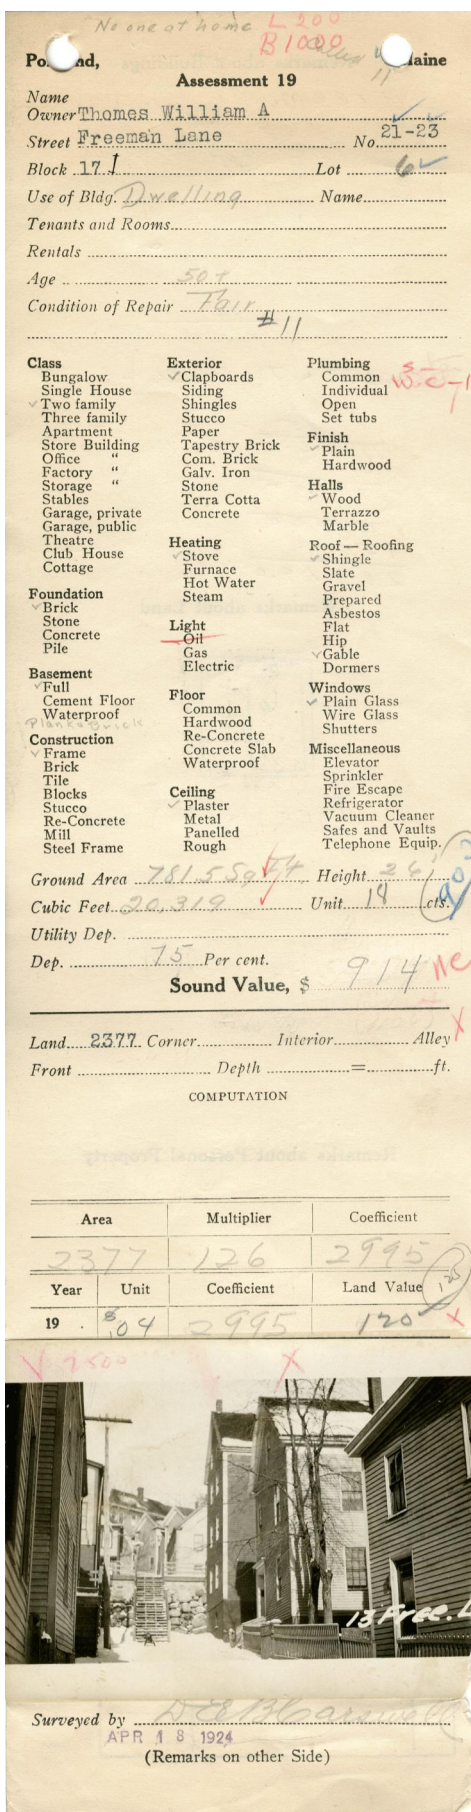 No one at home L 200
B 1000
Po nd, Maine
11
Assessment 19
Name
Owner Thomes William A
Street Freeman Lane No. 21-23
Block 17 Lot 6
Use of Bldg. Dwelling Name
Tenants and Rooms
Rentals
Age 50+
Condition of Repair Fair
#11
Class
Bungalow
Single House
Two family
Three family
Apartment
Store Building
Office "
Factory "
Storage "
Stables
Garage, private
Garage, public
Theatre
Club House
Cottage
Foundation
Brick
Stone
Concrete
Pile
Basement
Full
Cement Floor
Waterproof
Plank & Brick
Construction
Frame
Brick
Tile
Blocks
Stucco
Re-Concrete
Mill
Steel Frame
Exterior
Clapboards
Siding
Shingles
Stucco
Paper
Tapestry Brick
Com. Brick
Galv. Iron
Stone
Terra Cotta
Concrete
Heating
Stove
Furnace
Hot Water
Steam
Light
Oil
Gas
Electric
Floor
Common
Hardwood
Re-Concrete
Concrete Slab
Waterproof
Ceiling
Plaster
Metal
Panelled
Rough
Plumbing
Common
Individual
Open
Set tubs
S-1
W-C-1
Finish
Plain
Hardwood
Halls
Wood
Terrazzo
Marble
Roof — Roofing
Shingle
Slate
Gravel
Prepared
Asbestos
Flat
Hip
Gable
Dormers
Windows
Plain Glass
Wire Glass
Shutters
Miscellaneous
Elevator
Sprinkler
Fire Escape
Refrigerator
Vacuum Cleaner
Safes and Vaults
Telephone Equip.
Ground Area 781.5 Sq Ft Height 26'
Cubic Feet 20,319 Unit 18 cts.
Utility Dep.
Dep. 75 Per cent.
Sound Value, $ 914
Land 2377 Corner Interior Alley
Front Depth = ft.
COMPUTATION
Area Multiplier Coefficient
2377 126 2995
Year Unit Coefficient Land Value
19 . $.04 2995 120
125
13 Free. L
Surveyed by
APR 18 1924
(Remarks on other Side)